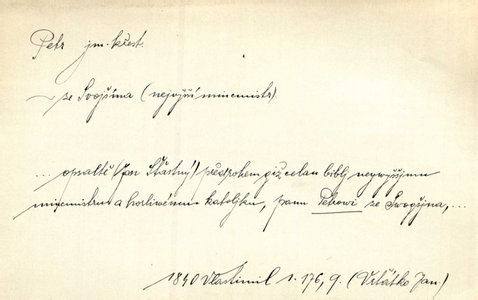 Petr jm. křest.
~ ze Svojšína (nejvyšší mincmistr)
... opsaltě (Jan Šťastný) předpohem giž celau bibli neywyššjmu
mincmistru a horliwému katoljku, panu Petrowi ze Swogšjna, ...
1840 Vlastimil 1. 176, 9. (Vrťátko Jan.)